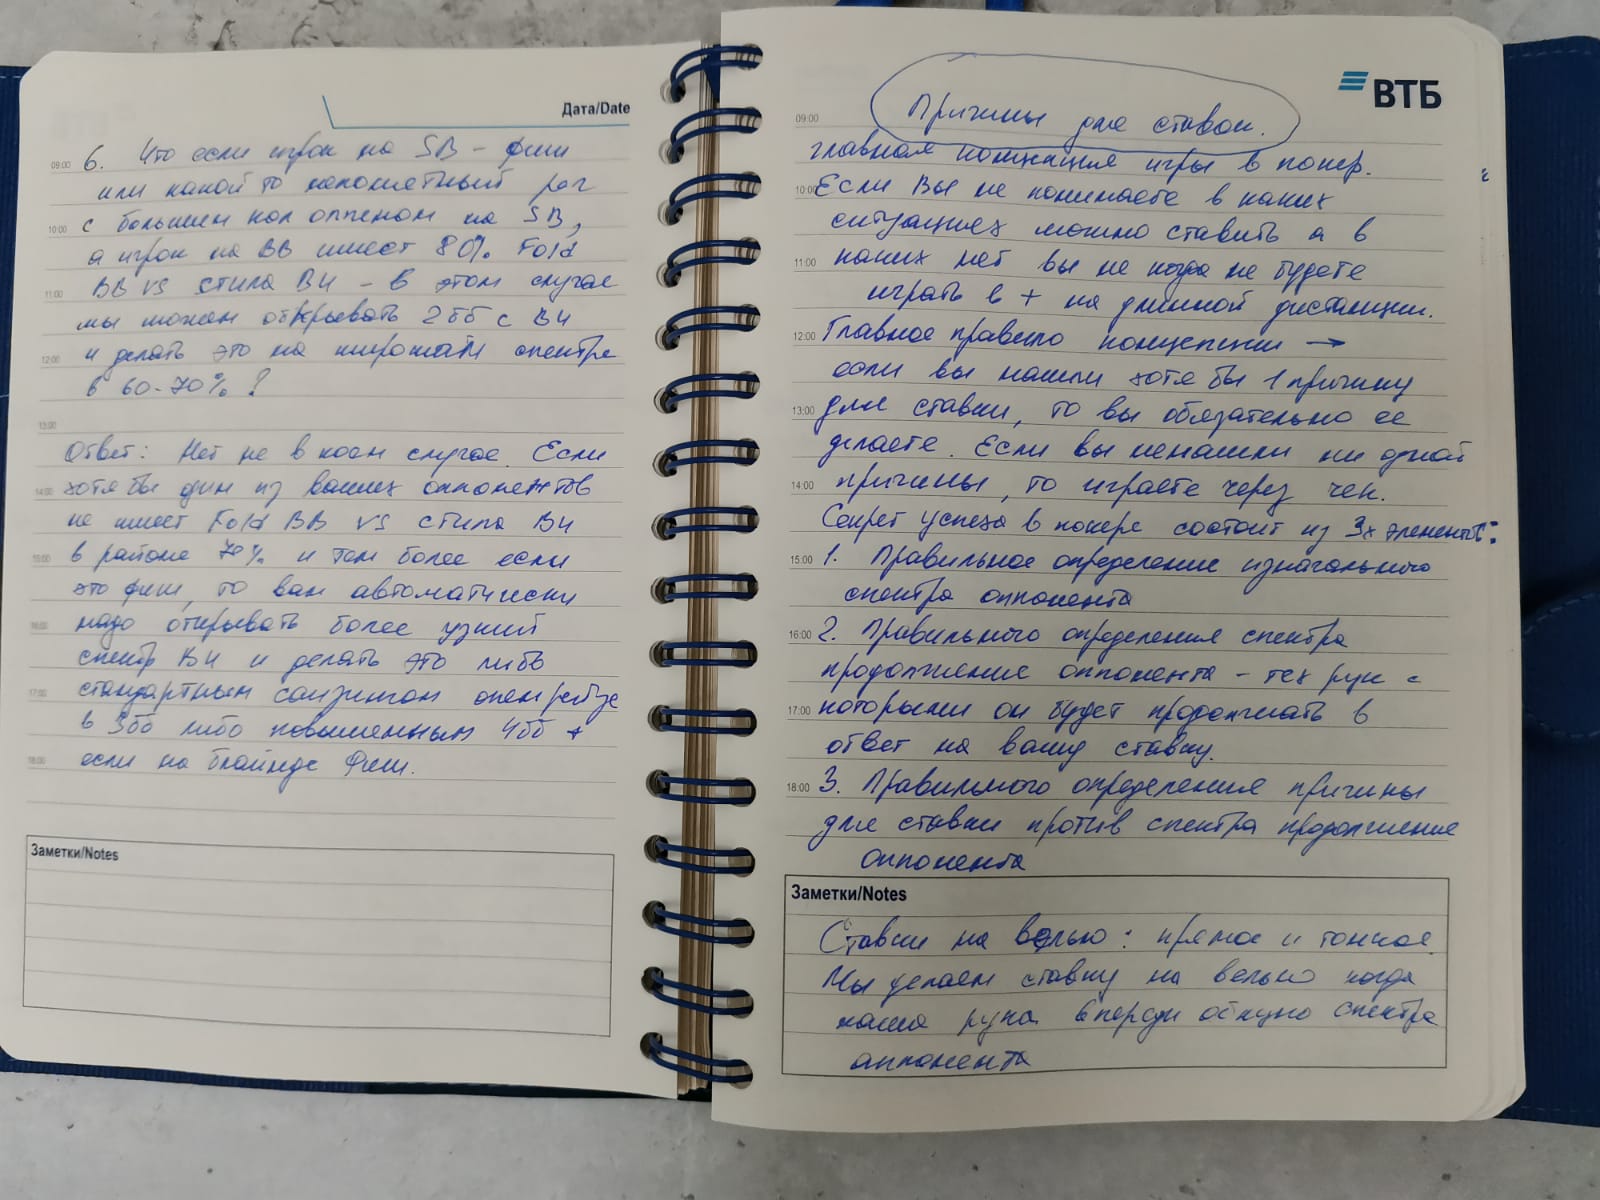 Дата/Date
09:00
6. Что если игрок на SB - фиш
или какой то непонятный рег
10:00
с большим кол оппеном на SB,
а игрок на BB имеет 80% Fold
11:00
BB vs стила BU - в этом случае
мы можем открывать 2бб с BU
12:00
и делать это на широком спектре
в 60-70%?
13:00
Ответ: Нет не в коем случае. Если
14:00
хотя бы один из ваших оппонентов
не имеет Fold BB vs стила BU
15:00
в районе 70% и тем более если
это фиш, то вам автоматически
16:00
надо открывать более узкий
спектр BU и делать это либо
17:00
стандартным сайзингом опенрейзе
в 3бб либо повышенным 4бб +
18:00
если на блайнде Фиш.
Заметки/Notes
ВТБ
09:00
Причины для ставок.
главная концепция игры в покер.
10:00
Если Вы не понимаете в каких
ситуациях можно ставить а в
11:00
каких нет вы не когда не будете
играть в + на длинной дистанции.
12:00
Главное правило концепции →
если вы нашли хотя бы 1 причину
13:00
для ставки, то вы обязательно ее
делаете. Если вы ненашли ни одной
14:00
причины, то играете через чек.
Секрет успеха в покере состоит из 3х элементов:
15:00
1. Правильное определение изначального
спектра оппонента
16:00
2. Правильного определения спектра
продолжение оппонента - тех рук с
17:00
которыми он будет продолжать в
ответ на вашу ставку.
18:00
3. Правильного определения причины
для ставки против спектра продолжение
оппонента
Заметки/Notes
Ставки на велью: прямое и тонкое
Мы делаем ставку на велью когда
наша рука впереди спектра
оппонента